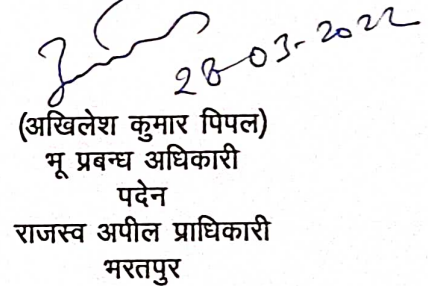 28-03-2022
(अखिलेश कुमार पिपल)
भू प्रबन्ध अधिकारी
पदेन
राजस्व अपील प्राधिकारी
भरतपुर